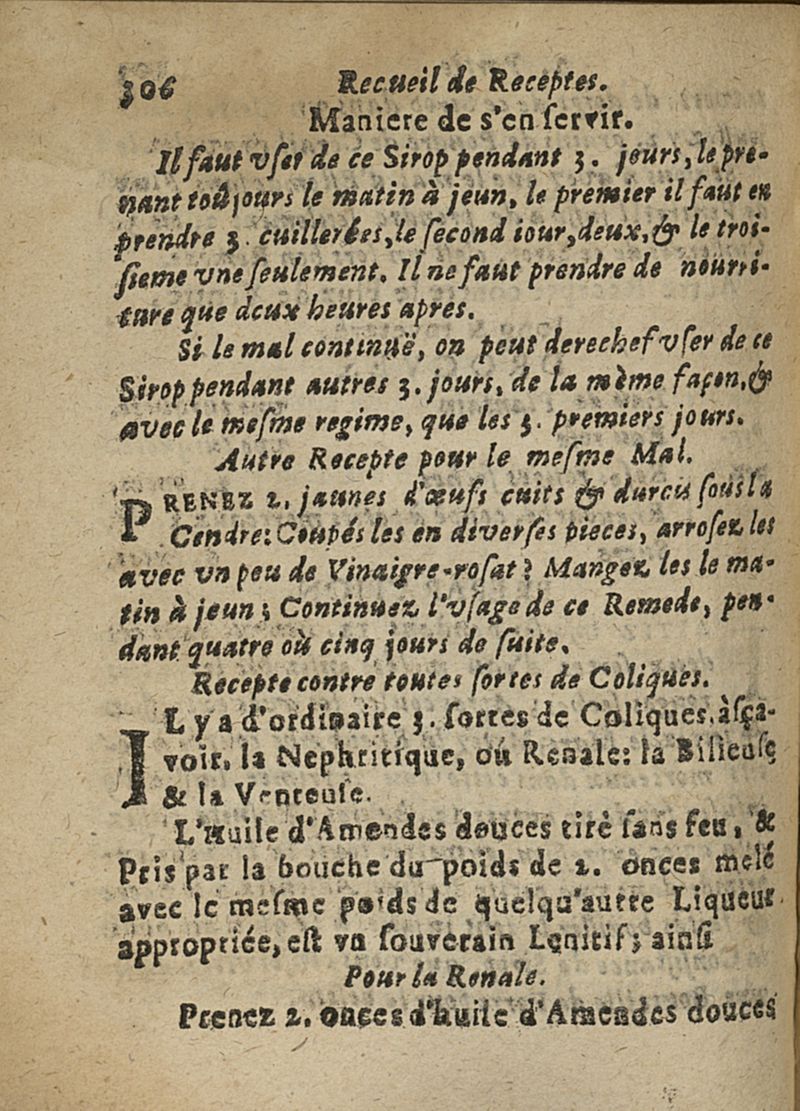 306 Recueil de Receptes.
Maniere de s'en ſervir.
Il faut vſer de ce Sirop pendant 3. jours, le pre-
nant toûjours le matin à jeun, le premier il faut en
prendre 3. cuillerées, le ſecond iour, deux, & le troi-
ſieme vne ſeulement. Il ne faut prendre de nourri-
ture que deux heures apres.
Si le mal continuë, on peut derechef vſer de ce
Sirop pendant autres 3. jours, de la mème façon, &
avec le meſme regime, que les 3. premiers jours.
Autre Recepte pour le meſme Mal.
PRENEZ 2. jaunes d'œufs cuits & durcis ſous la
Cendre: Coupés les en diverſes pieces, arroſez les
avec vn peu de Vinaigre-roſat? Mangez les le ma-
tin à jeun; Continuez l'vſage de ce Remede, pen-
dant quatre où cinq jours de ſuite.
Recepte contre toutes ſortes de Coliques.
IL y a d'ordinaire 3. ſortes de Coliques, àſça-
voir, la Nephritique, où Renale: la Bilieuſe
& la Venteuſe.
L'Huile d'Amendes douces tirè ſans feu, &
Pris par la bouche du poids de 2. onces melé
avec le meſme poids de quelqu'autre Liqueur
appropriée, eſt vn ſouverain Lenitif; ainſi
Pour la Renale.
Prenez 2. onces d'huile d'Amendes douces